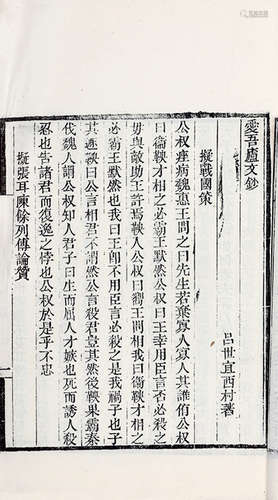 愛吾廬文鈔
呂世宜西村著
擬戰國策
公叔痤病魏惠王問之曰先生若棄寡人寡人其誰侑公叔
曰衞鞅才相之必霸王默然公叔曰王幸用臣言否必殺之
毋與敵助王許焉鞅人公叔曰嚮王問相我曰衞鞅才相之
必霸王默然也我曰王卽不用臣言必殺之是我禍子也子
其逐鞅曰公言相君不謂然公言殺君豈其然後鞅果霸秦
伐魏人謂公叔知人君子曰生而屈人才嫉也死而誘人殺
忍也告諸君而復逸之悖也公叔於是乎不忠
擬張耳陳餘列傳論贊